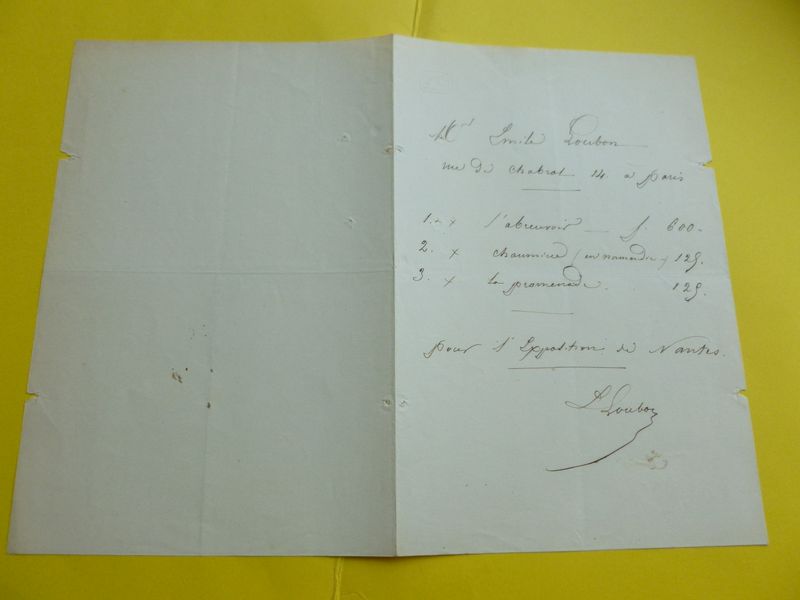 Mr Emile Loubon
rue de chabrol 14 a paris
1. x l'abreuvoir — f. 600-
2. x chaumiere (en normandie) 125.
3. x la promenade . 125.
pour l'Exposition de Nantes.
E Loubon